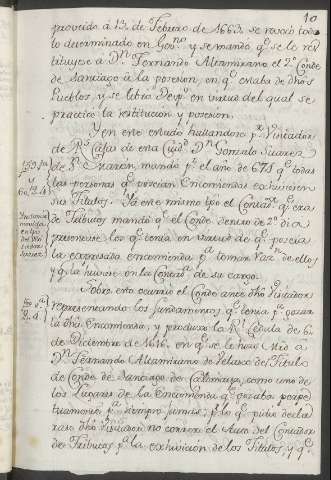 10
proveido á 13. de Febrero de 1663. se revocó todo
lo determinado en Gov.no y se mandó q.e se le res
tituyese á D.n Fernando Altamirano el 2.o Conde
de Santiago á la posesion, en q.e estaba de dhos
Pueblos, y se libró Desp.o en virtud del qual se
practicó la restitucion y posesion.
Y en este estado hallandose p.r Visitador
de R.s Caxas de esta Ciud.d D.n Gonzalo Suarez
de S.n Martin, mandó p.r el año de 675 q.e todas
las personas q.e poseian Encomiendas exhiviesen
sus Titulos. Y á este mismo tpo el Contad.r q.e era
de Tributos mandó q.e el Conde dentro de 2.o dia
presentase los q.e tenia en virtud de q.e poseia
la expresada encomienda p.a tomar razon de ellos
y q.e la huviese en la Contad.a de su cargo.
Sobre esto ocurrió el Conde ante dho Visitador
representando los fundamentos q.e tenia p.a gozar
la dha Encomienda, y produxo la R.l Cedula de 6.
de Diciembre de 1616. en q.e se le hizo Mrd á
D.n Fernando Altamirano de Velasco del Titulo
de Conde de Santiago de Calimaya, como uno de
los Lugares de la Encomienda q.e gozaba perpe
tuamente p.a siempre jamas; p.r lo q.e pidió decla
rase dho Visitador no correr el Auto del Contador
de Tributos p.a la exhivicion de los Titulos, y q.e